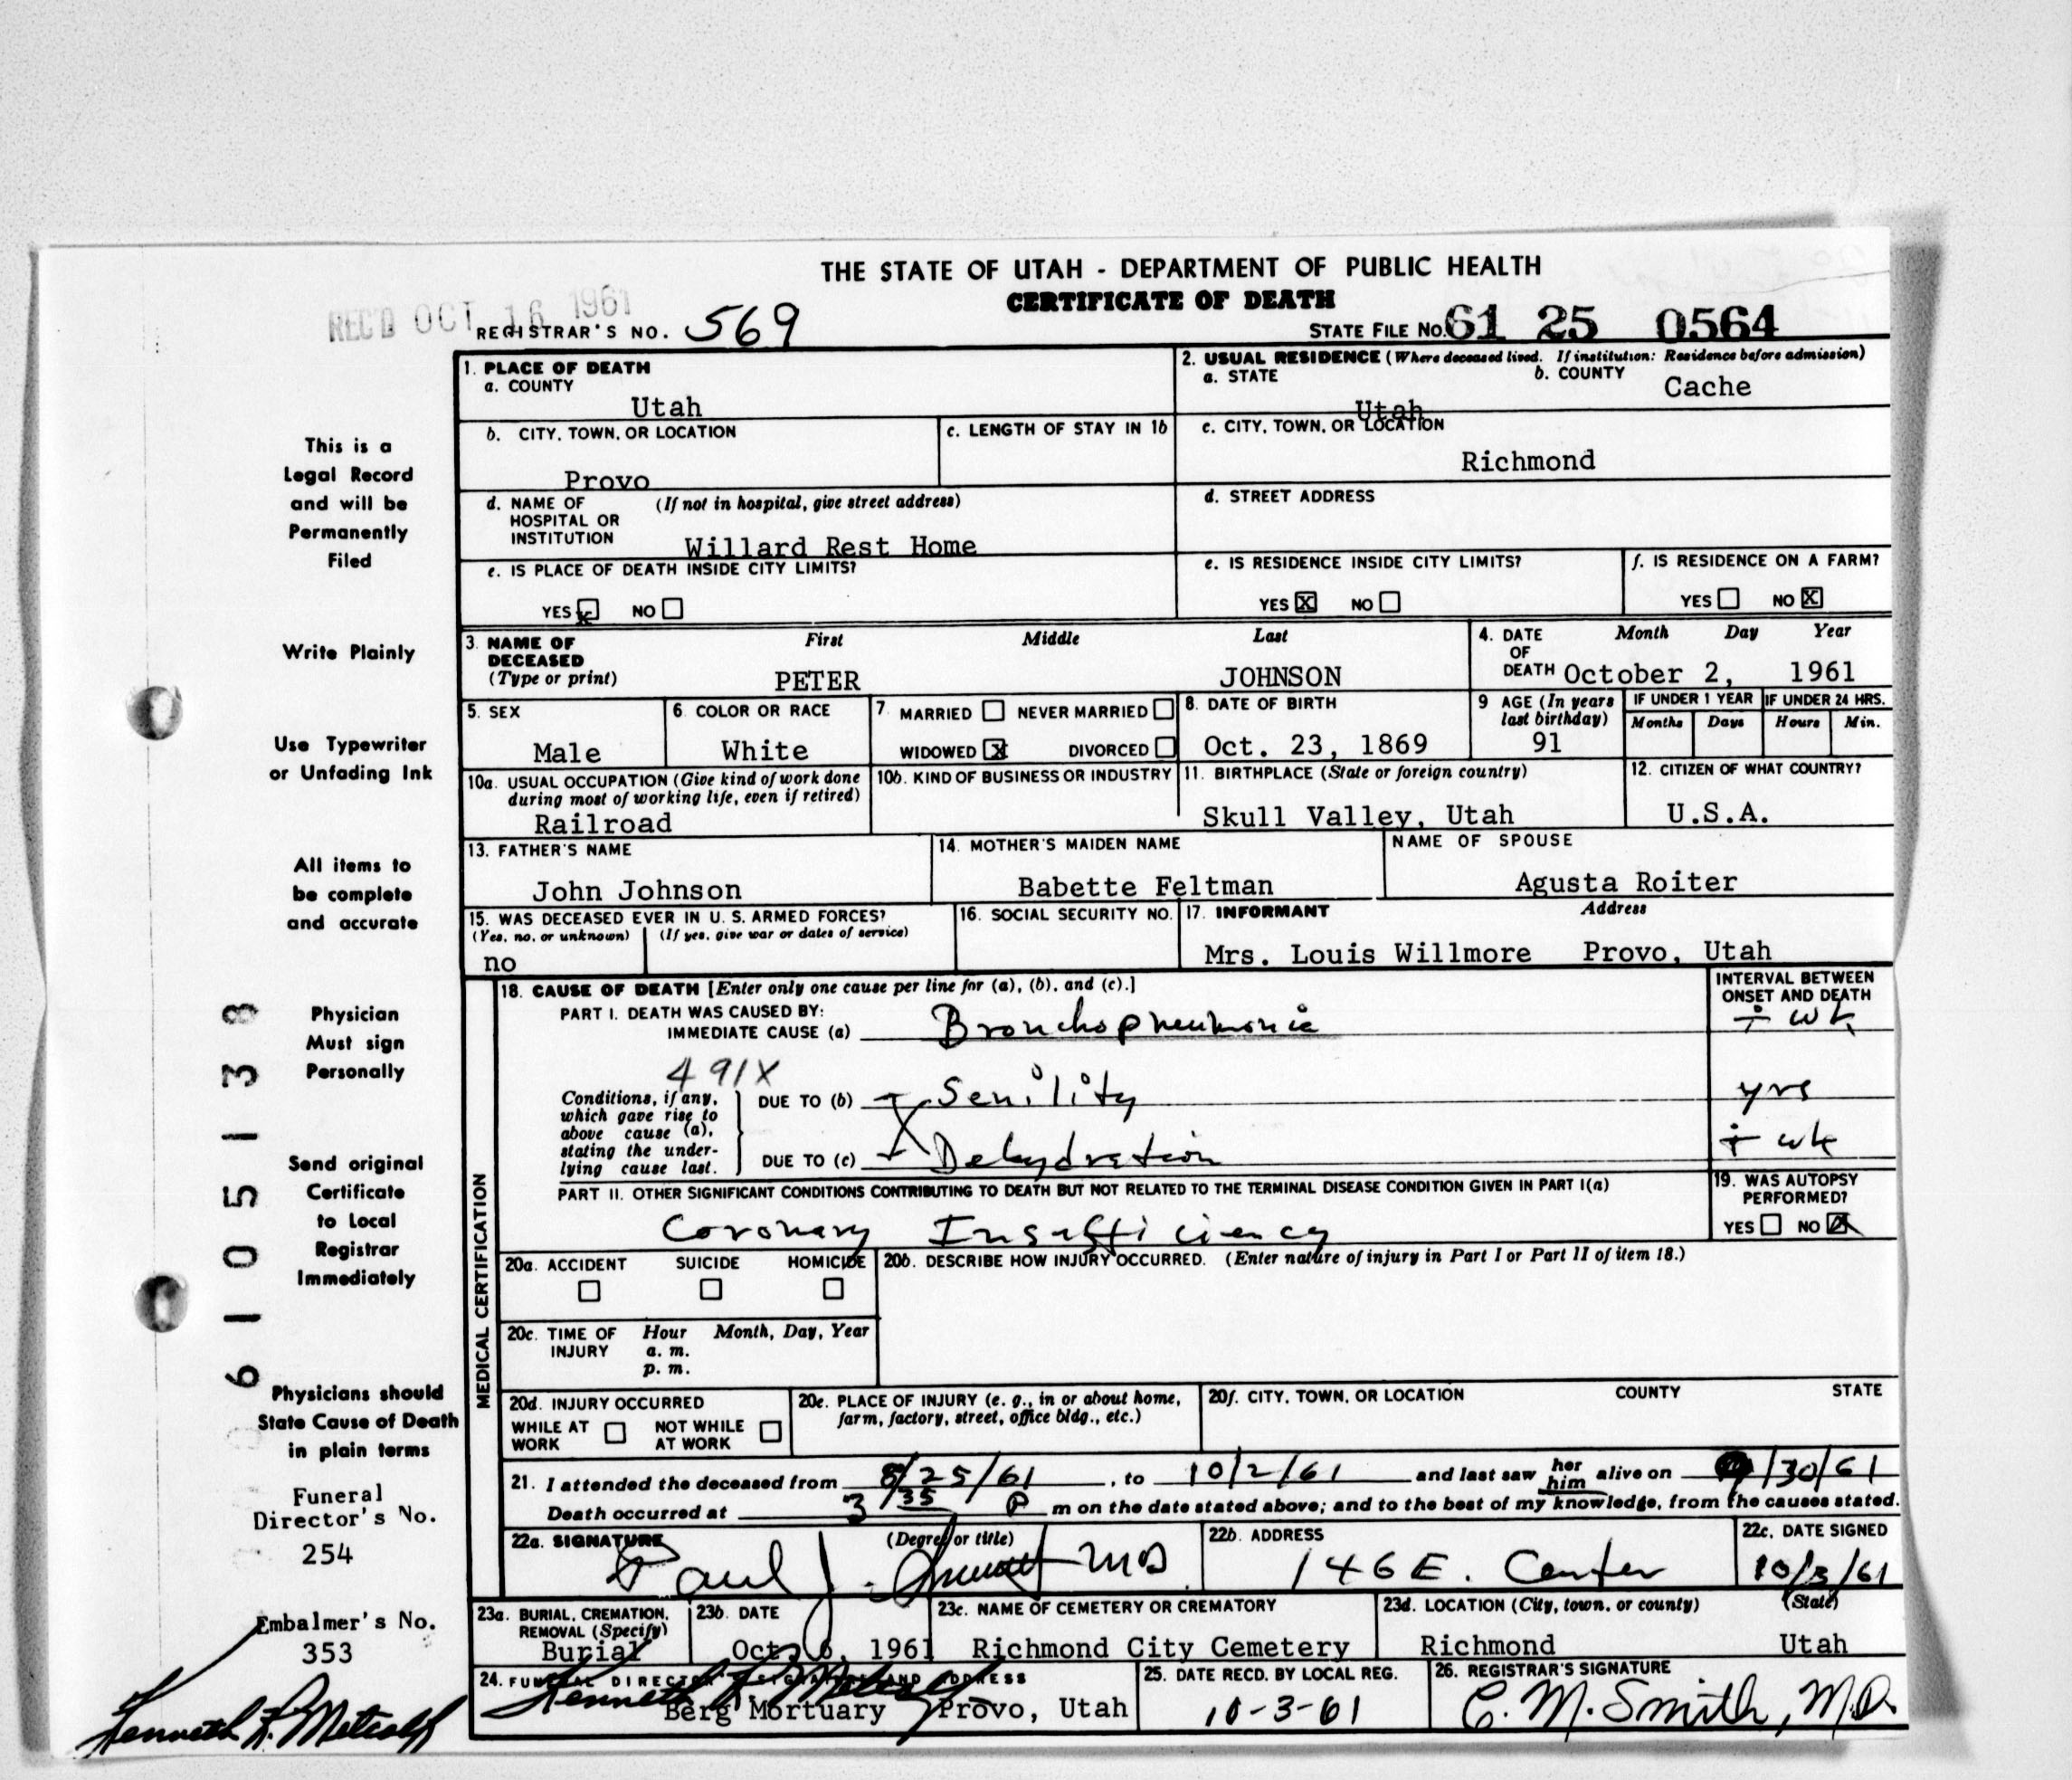 THE STATE OF UTAH - DEPARTMENT OF PUBLIC HEALTH
CERTIFICATE OF DEATH
REC'D OCT 16 1961
REGISTRAR'S NO. 569
STATE FILE NO. 61 25 0564
1. PLACE OF DEATH
a. COUNTY
Utah
2. USUAL RESIDENCE (Where deceased lived. If institution: Residence before admission)
a. STATE
Utah
b. COUNTY
Cache
b. CITY, TOWN, OR LOCATION
Provo
c. LENGTH OF STAY IN 1b
c. CITY, TOWN, OR LOCATION
Richmond
d. NAME OF HOSPITAL OR INSTITUTION
(If not in hospital, give street address)
Willard Rest Home
d. STREET ADDRESS
e. IS PLACE OF DEATH INSIDE CITY LIMITS?
YES x NO
e. IS RESIDENCE INSIDE CITY LIMITS?
YES X NO
f. IS RESIDENCE ON A FARM?
YES NO X
3. NAME OF DECEASED (Type or print)
First Middle Last
PETER JOHNSON
4. DATE OF DEATH
Month Day Year
October 2, 1961
5. SEX
Male
6. COLOR OR RACE
White
7. MARRIED NEVER MARRIED
WIDOWED X DIVORCED
8. DATE OF BIRTH
Oct. 23, 1869
9 AGE (In years last birthday)
91
IF UNDER 1 YEAR
Months Days
IF UNDER 24 HRS.
Hours Min.
10a. USUAL OCCUPATION (Give kind of work done during most of working life, even if retired)
Railroad
10b. KIND OF BUSINESS OR INDUSTRY
11. BIRTHPLACE (State or foreign country)
Skull Valley, Utah
12. CITIZEN OF WHAT COUNTRY?
U.S.A.
13. FATHER'S NAME
John Johnson
14. MOTHER'S MAIDEN NAME
Babette Feltman
NAME OF SPOUSE
Agusta Roiter
15. WAS DECEASED EVER IN U. S. ARMED FORCES?
(Yes, no, or unknown) (If yes, give war or dates of service)
no
16. SOCIAL SECURITY NO.
17. INFORMANT Address
Mrs. Louis Willmore Provo, Utah
MEDICAL CERTIFICATION
18. CAUSE OF DEATH [Enter only one cause per line for (a), (b), and (c).]
INTERVAL BETWEEN ONSET AND DEATH
PART I. DEATH WAS CAUSED BY:
IMMEDIATE CAUSE (a) Bronchopneumonia ÷ wk
491X
Conditions, if any, which gave rise to above cause (a), stating the underlying cause last.
DUE TO (b) Senility yrs
DUE TO (c) Dehydration ÷ wk
PART II. OTHER SIGNIFICANT CONDITIONS CONTRIBUTING TO DEATH BUT NOT RELATED TO THE TERMINAL DISEASE CONDITION GIVEN IN PART I(a)
Coronary Insufficiency
19. WAS AUTOPSY PERFORMED?
YES NO X
20a. ACCIDENT SUICIDE HOMICIDE
20b. DESCRIBE HOW INJURY OCCURRED. (Enter nature of injury in Part I or Part II of item 18.)
20c. TIME OF INJURY
Hour Month, Day, Year
a. m.
p. m.
20d. INJURY OCCURRED
WHILE AT WORK NOT WHILE AT WORK
20e. PLACE OF INJURY (e. g., in or about home, farm, factory, street, office bldg., etc.)
20f. CITY, TOWN, OR LOCATION COUNTY STATE
21. I attended the deceased from 8/25/61, to 10/2/61 and last saw her him alive on 9/30/61
Death occurred at 3 35 P m on the date stated above; and to the best of my knowledge, from the causes stated.
22a. SIGNATURE (Degree or title)
Paul J. MD
22b. ADDRESS
146 E. Center
22c. DATE SIGNED
10/3/61
23a. BURIAL, CREMATION, REMOVAL (Specify)
Burial
23b. DATE
Oct. 6, 1961
23c. NAME OF CEMETERY OR CREMATORY
Richmond City Cemetery
23d. LOCATION (City, town, or county) (State)
Richmond Utah
24. FUNERAL DIRECTOR'S SIGNATURE AND ADDRESS
Kenneth L. Metcalf
Berg Mortuary Provo, Utah
25. DATE RECD. BY LOCAL REG.
10-3-61
26. REGISTRAR'S SIGNATURE
C. M. Smith, M.D.
This is a
Legal Record
and will be
Permanently
Filed
Write Plainly
Use Typewriter
or Unfading Ink
All items to
be complete
and accurate
Physician
Must sign
Personally
Send original
Certificate
to Local
Registrar
Immediately
Physicians should
State Cause of Death
in plain terms
Funeral
Director's No.
254
Embalmer's No.
353
Kenneth L. Metcalf
61 05138